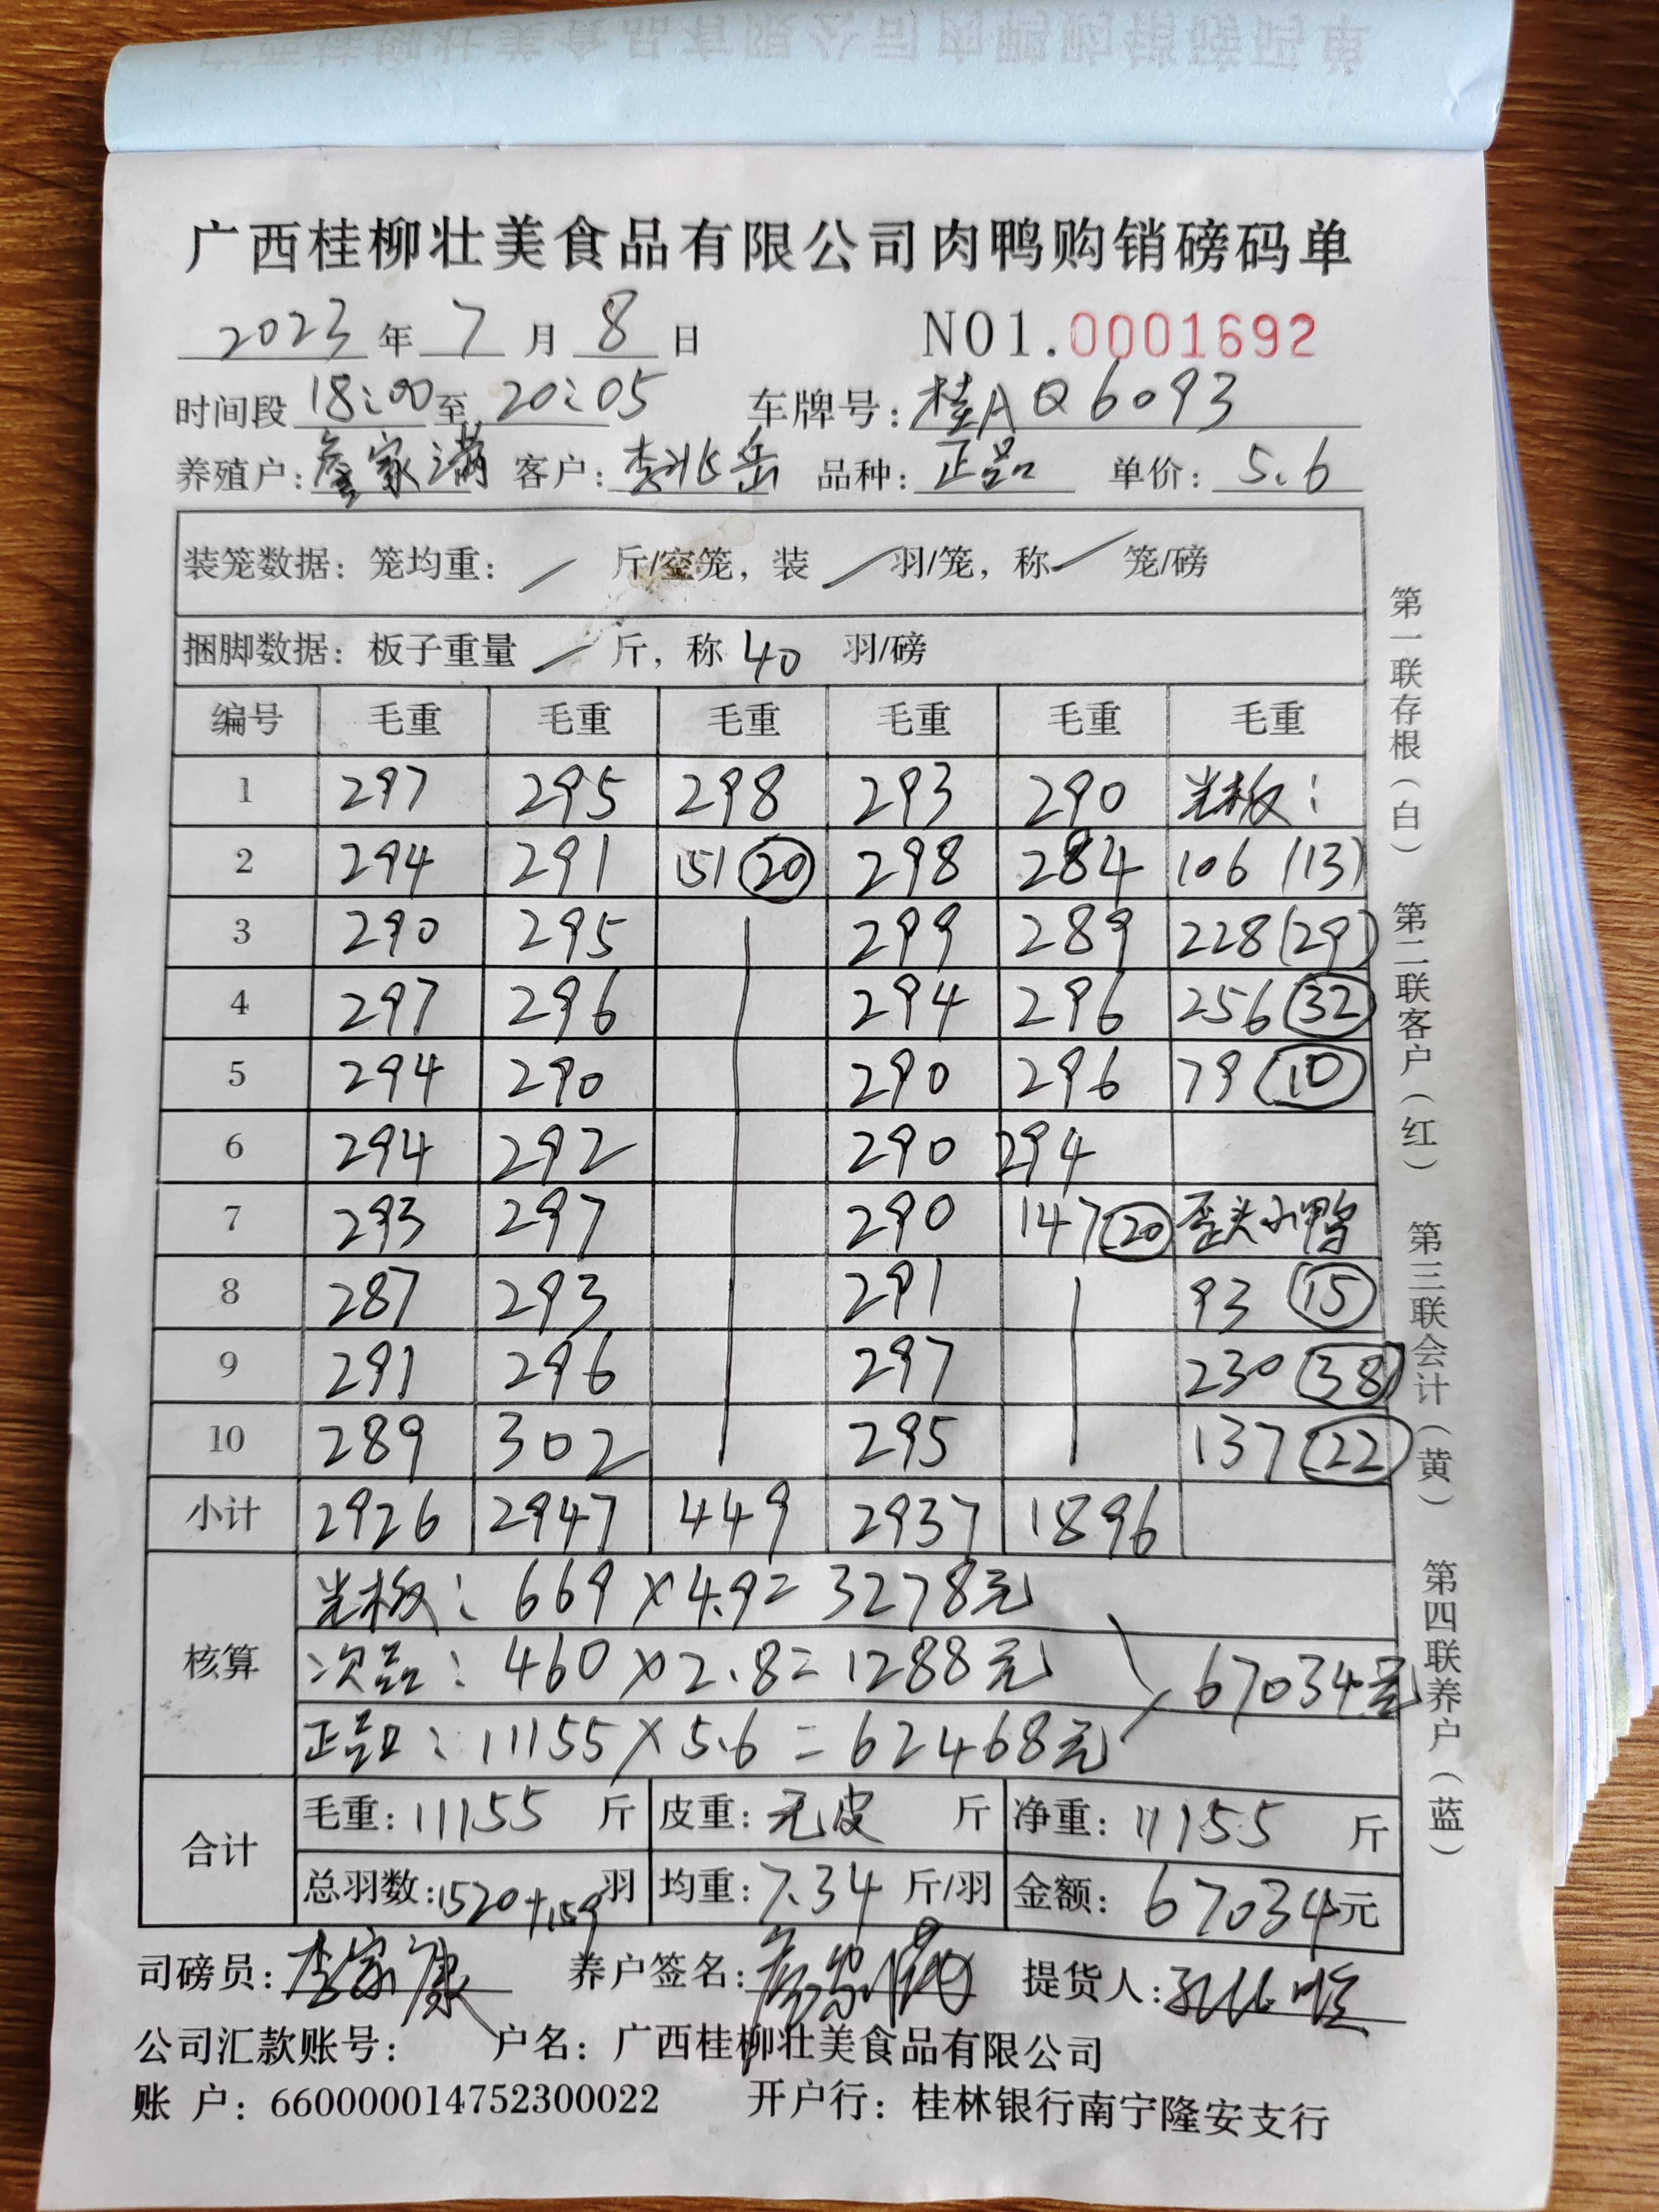 广西桂柳壮美食品有限公司肉鸭购销磅码单
2023年 7 月 8 日 NO1.0001692
时间段 18:00至 20:05 车牌号: 桂AQ6093
养殖户: 家满 客户: 李兆岳 品种: 正品 单价: 5.6
装笼数据: 笼均重: / 斤/空笼, 装 / 羽/笼, 称 / 笼/磅
捆脚数据: 板子重量 / 斤, 称 40 羽/磅
编号 毛重 毛重 毛重 毛重 毛重 毛重
1 297 295 298 293 290 光板:
2 294 291 151 (20) 298 284 106 (13)
3 290 295 299 289 228 (29)
4 297 296 294 296 256 (32)
5 294 290 290 296 79 (10)
6 294 292 290 294
7 293 297 290 147 (20) 歪头小鸭
8 287 293 291 93 (15)
9 291 296 297 230 (38)
10 289 302 295 137 (22)
小计 2926 2947 449 2937 1896
核算
光板: 669×4.9=3278元
次品: 460×2.8=1288元
67034元
正品: 11155×5.6=62468元
合计
毛重: 11155 斤 皮重: 无皮 斤 净重: 11155 斤
总羽数: 1520+159 羽 均重: 7.34 斤/羽 金额: 67034元
司磅员: 李家康 养户签名: 提货人:
公司汇款账号: 户名: 广西桂柳壮美食品有限公司
账 户: 660000014752300022 开户行: 桂林银行南宁隆安支行
第一联存根(白) 第二联客户(红) 第三联会计(黄) 第四联养户(蓝)